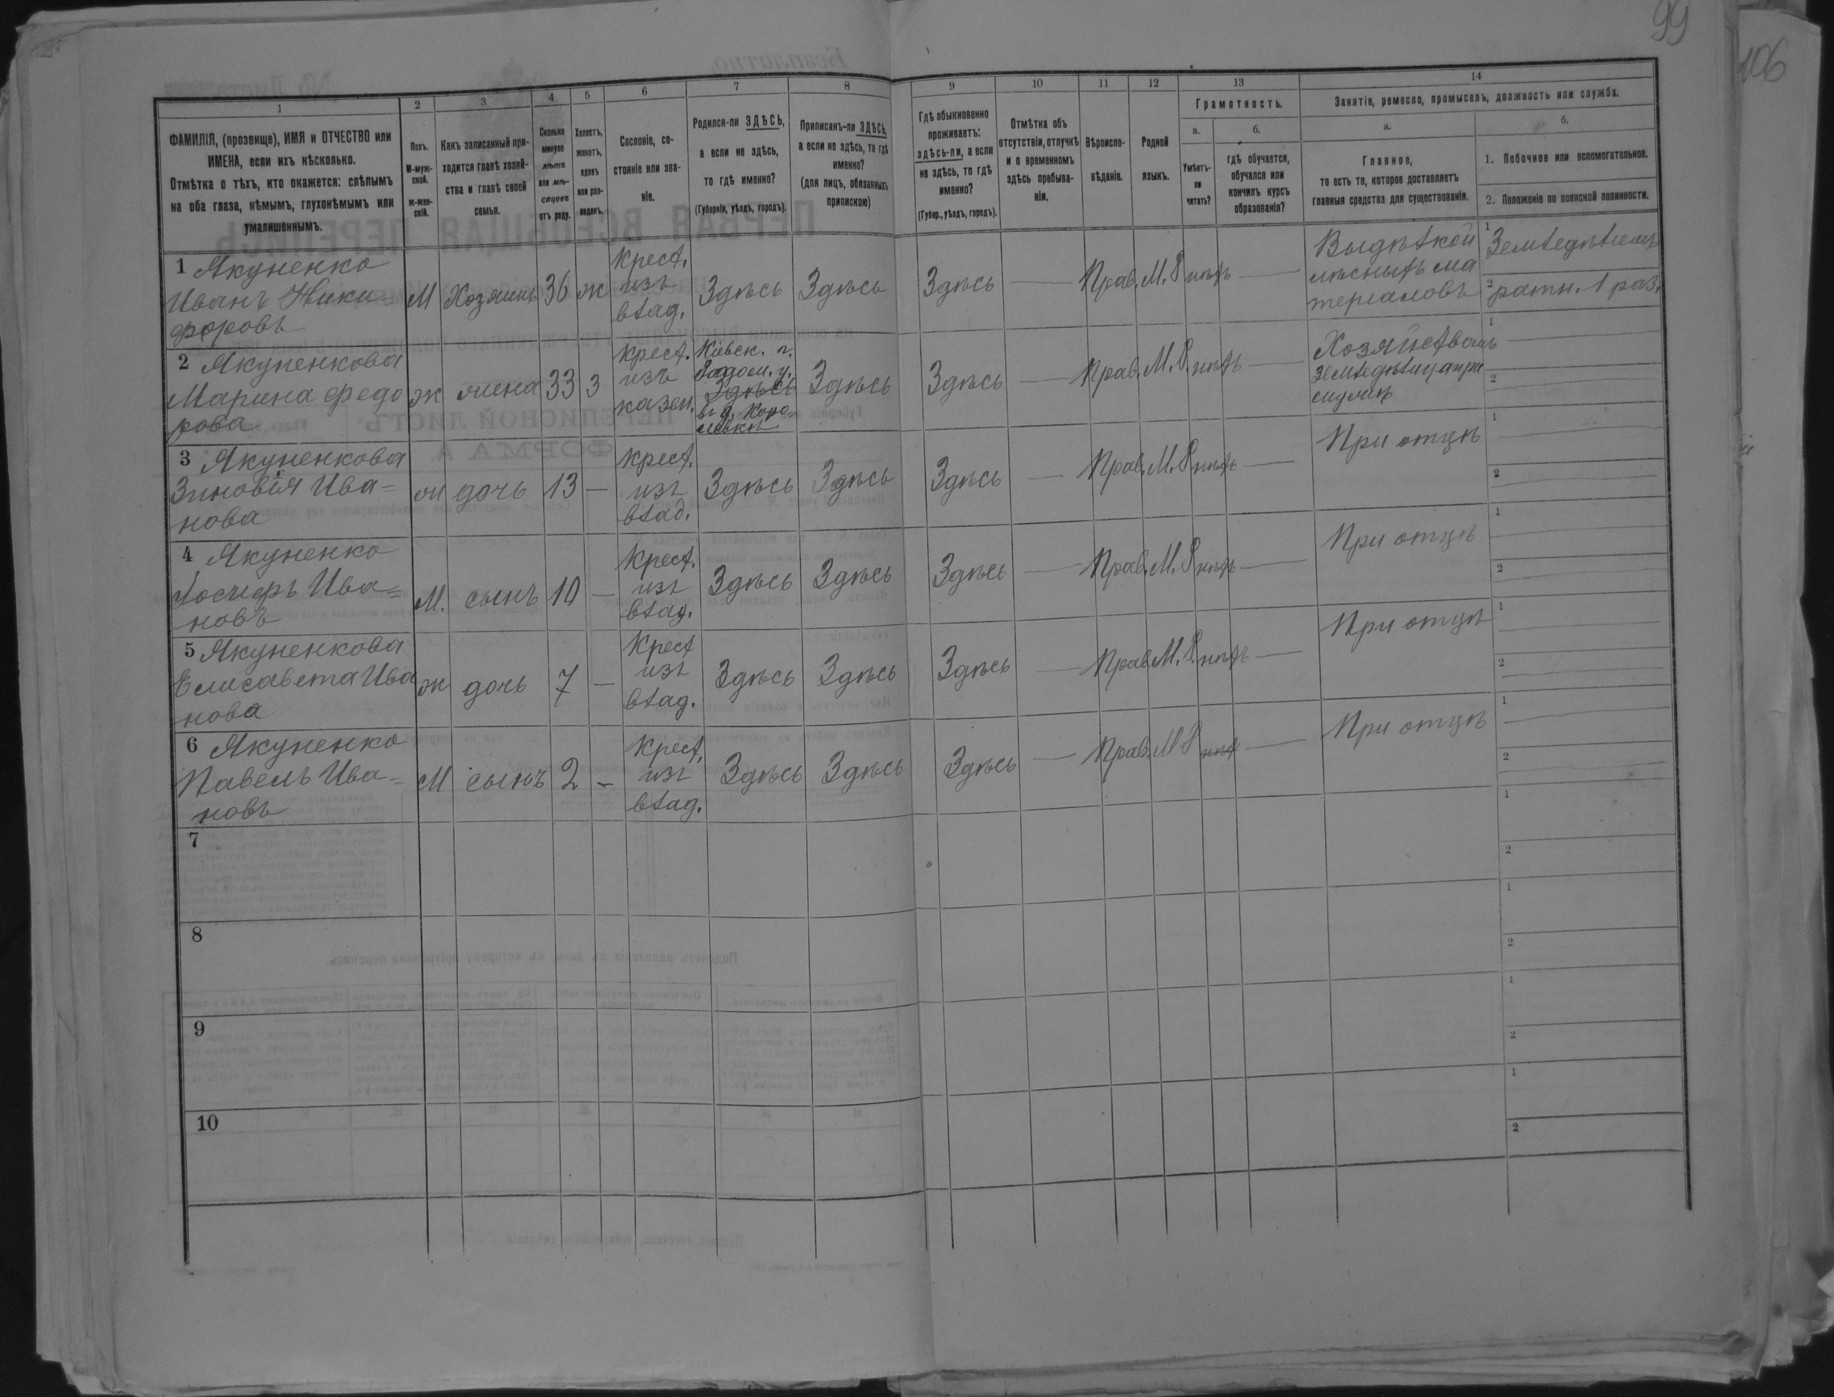 99
106
1
2
3
4
5
6
7
8
9
10
11
12
13
14
ФАМИЛІЯ, (прозвище), ИМЯ и ОТЧЕСТВО или
ИМЕНА, если ихъ нѣсколько.
Отмѣтка о тѣхъ, кто окажется: слѣпымъ
на оба глаза, нѣмымъ, глухонѣмымъ или
умалишеннымъ.
Полъ.
М-муж-
ской.
Ж-жен-
скій.
Какъ записанный при-
ходится главѣ хозяй-
ства и главѣ своей
семьи.
Сколько
минуло
лѣтъ
или мѣ-
сяцевъ
отъ роду.
Холостъ,
женатъ,
вдовъ
или раз-
веденъ.
Сословіе, со-
стояніе или зва-
ніе.
Родился-ли ЗДѢСЬ,
а если не здѣсь,
то гдѣ именно?
(Губернія, уѣздъ, городъ).
Приписанъ-ли ЗДѢСЬ,
а если не здѣсь, то гдѣ
именно?
(для лицъ, обязанныхъ
припискою)
Гдѣ обыкновенно
проживаетъ:
здѣсь-ли, а если
не здѣсь, то гдѣ
именно?
(Губер., уѣздъ, городъ).
Отмѣтка объ
отсутствіи, отлучкѣ
и о временномъ
здѣсь пребыва-
ніи.
Вѣроиспо-
вѣданіе.
Родной
языкъ.
Грамотность.
а.
Умѣетъ-
ли
читать?
б.
гдѣ обучается,
обучался или
кончилъ курсъ
образованія?
Занятіе, ремесло, промыселъ, должность или служба.
а.
Главное,
то есть то, которое доставляетъ
главныя средства для существованія.
б.
1. Побочное или вспомогательное.
2. Положеніе по воинской повинности.
1 Якуненко
Иванъ Ники=
форовъ
М
Хозяинъ
36
ж
Крест.
изъ
влад.
Здѣсь
Здѣсь
Здѣсь
—
Прав.
М. Р
нѣтъ
—
Выдѣлкой
лѣсныхъ ма
терiаловъ
1 Земледѣлецъ
2 ратн. 1 раз.
2 Якуненкова
Марина Федо
рова
ж
жена
33
з
Крест.
изъ
казен.
Кіевск. г.
Здѣсь
Здѣсь
Здѣсь
—
Прав.
М. Р.
нѣтъ
—
1
2
3 Якуненкова
Зиновія Ива=
нова
ж
дочь
13
—
Крест.
изъ
влад.
Здѣсь
Здѣсь
Здѣсь
—
Прав.
М. Р
нѣтъ
—
При отцѣ
1
2
4 Якуненко
Іосифъ Ива=
новъ
М.
сынъ
10
—
Крест.
изъ
влад.
Здѣсь
Здѣсь
Здѣсь
—
Прав.
М. Р
нѣтъ
—
При отцѣ
1
2
5 Якуненкова
Елисавета Ива
нова
ж
дочь
7
—
Крест
изъ
влад.
Здѣсь
Здѣсь
Здѣсь
—
Прав.
М. Р.
нѣтъ
—
При отцѣ
1
2
6 Якуненко
Павелъ Ива=
новъ
М
сынъ
2
—
Крест.
изъ
влад.
Здѣсь
Здѣсь
Здѣсь
—
Прав.
М Р
нѣт
—
При отцѣ
1
2
7
1
2
8
1
2
9
1
2
10
1
2